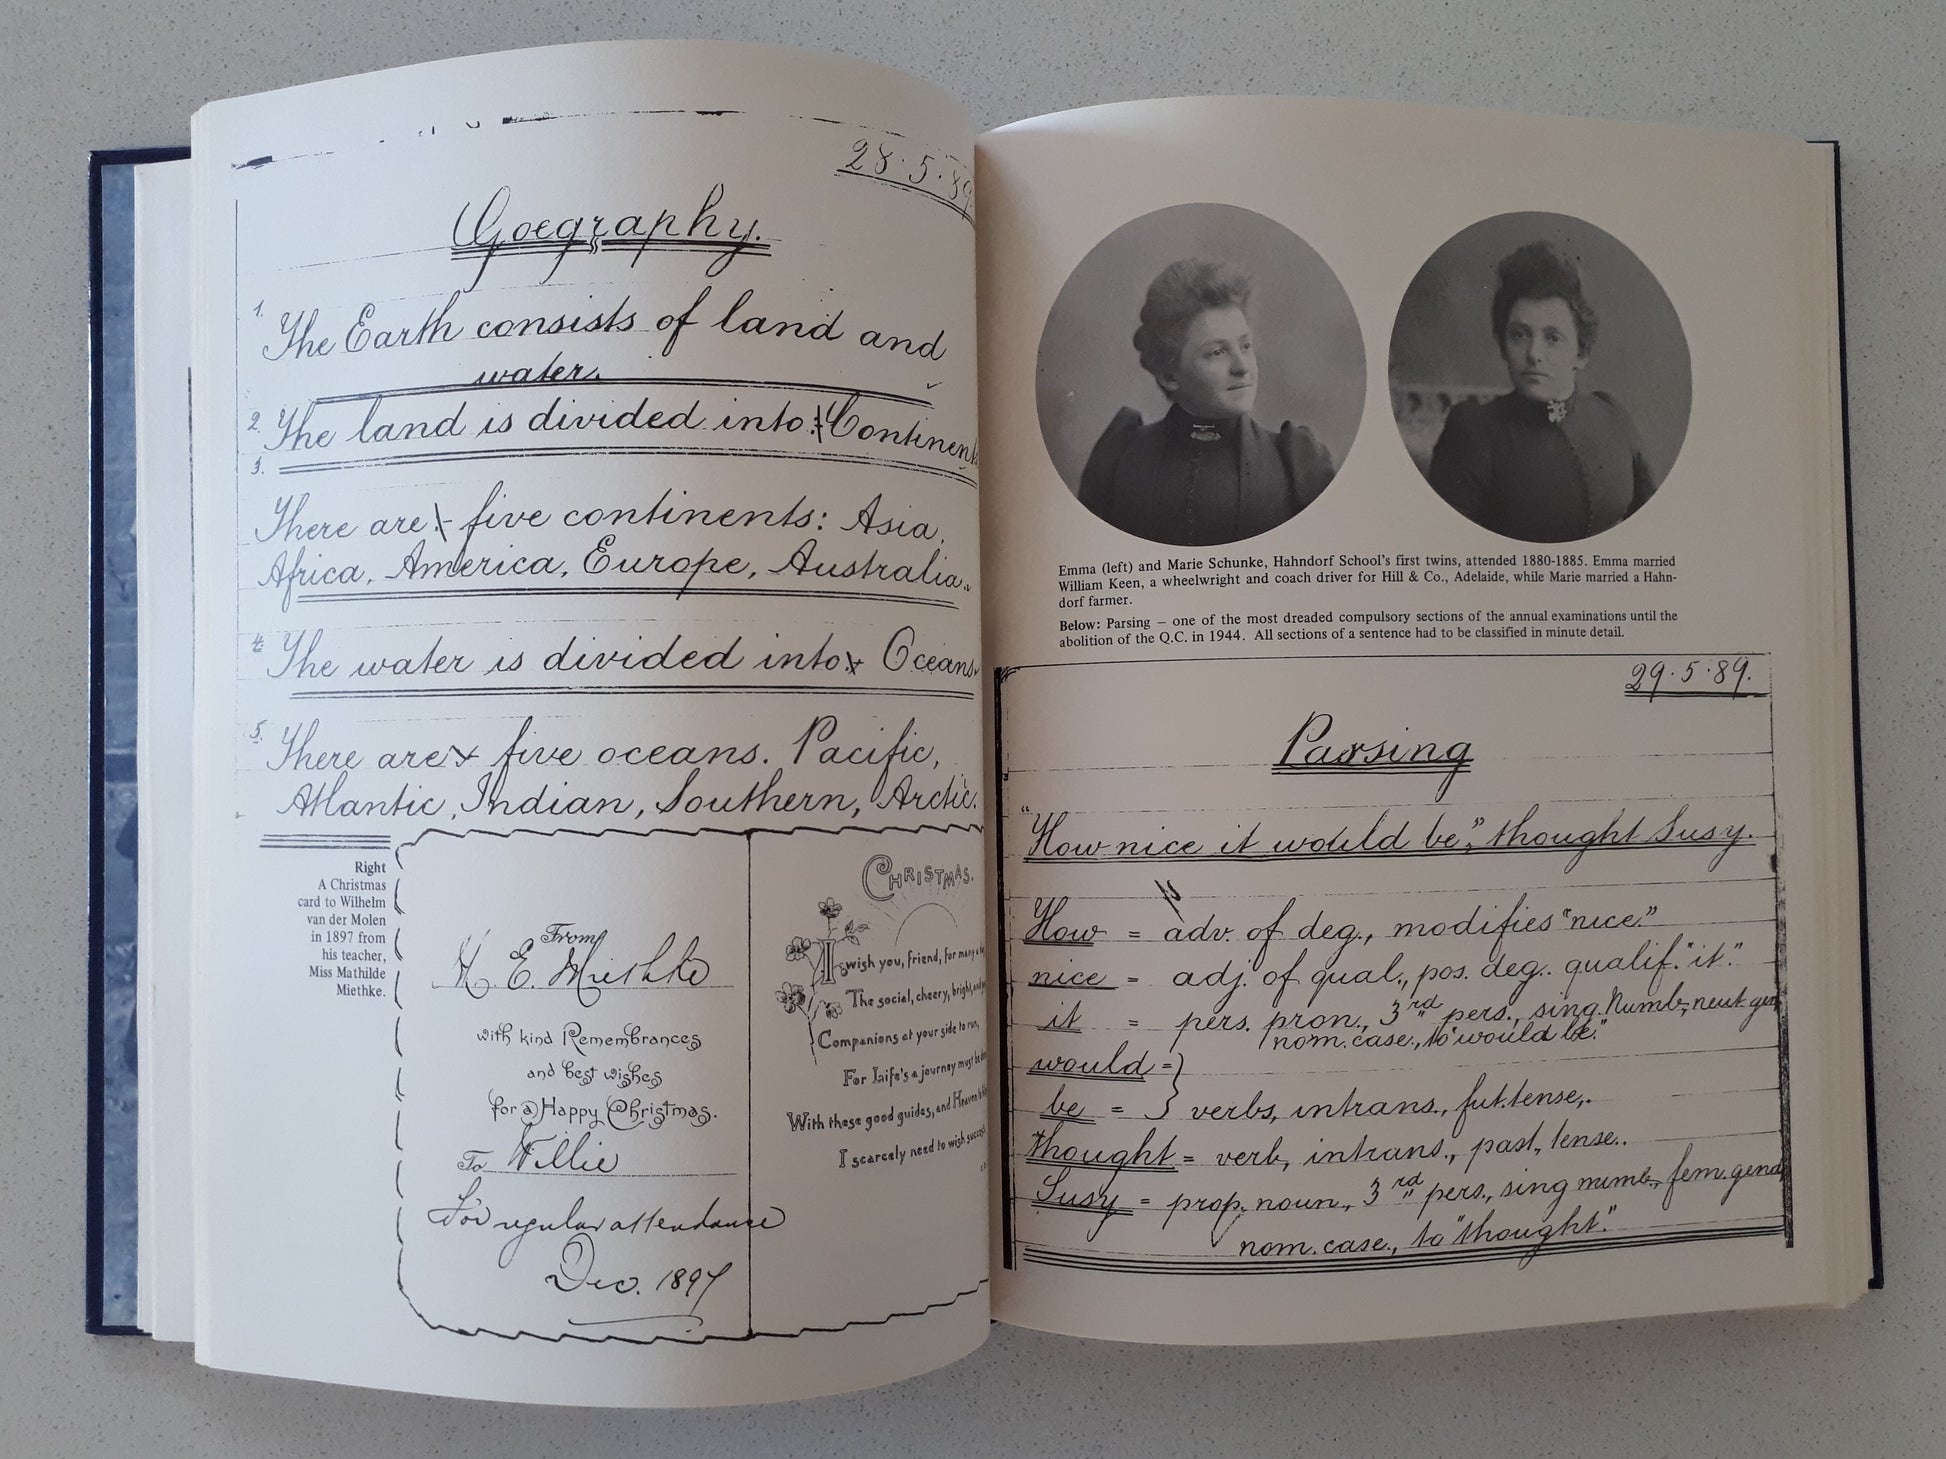 28.5.89
Goegraphy.
1. The Earth consists of land and
water.
2. The land is divided into: Continents
3.
There are:- five continents: Asia,
Africa, America, Europe, Australia.
4. The water is divided into Oceans.
5. There are five oceans. Pacific,
Atlantic, Indian, Southern, Arctic.
Right
A Christmas
card to Wilhelm
van der Molen
in 1897 from
his teacher,
Miss Mathilde
Miethke.
From
M. E. Miethke
with kind Remembrances
and best wishes
for a Happy Christmas.
To Willie
For regular attendance
Dec. 1897
CHRISTMAS.
I wish you, friend, for many a
The social, cheery, bright,
Companions at your side to run,
For Life's a journey must be
With these good guides, and Heaven
I scarcely need to wish success
Emma (left) and Marie Schunke, Hahndorf School's first twins, attended 1880-1885. Emma married
William Keen, a wheelwright and coach driver for Hill & Co., Adelaide, while Marie married a Hahn-
dorf farmer.
Below: Parsing – one of the most dreaded compulsory sections of the annual examinations until the
abolition of the Q.C. in 1944. All sections of a sentence had to be classified in minute detail.
29.5.89.
Parsing
"How nice it would be", thought Susy.
How = adv. of deg., modifies "nice."
nice = adj. of qual., pos. deg. qualif. "it."
it = pers. pron., 3rd pers., sing. Numb., neut. gen
nom. case., to "would be."
would =}
be = } verbs, intrans., fut. tense,.
thought = verb, intrans., past, tense..
Susy = prop. noun., 3rd pers., sing numb., fem. gend
nom. case., to "thought."